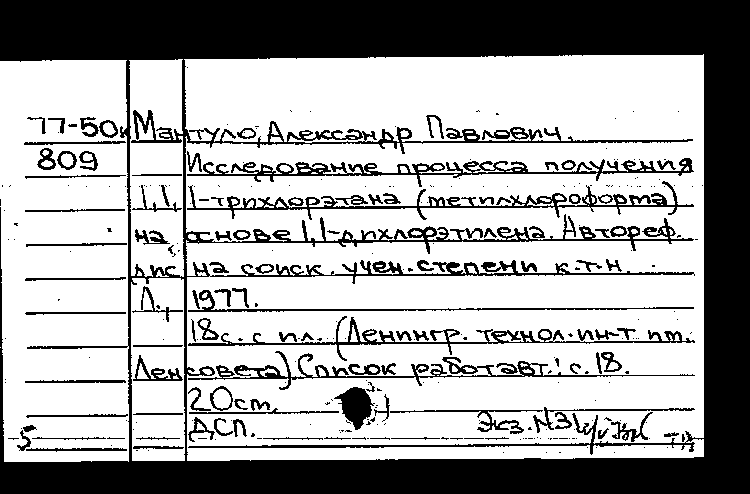 77-50к Мантуло, Александр Павлович.
809 Исследование процесса получения
1,1,1-трихлорэтана (метилхлороформа)
на основе 1,1-дихлорэтилена. Автореф.
дис. на соиск. учен. степени к.т.н.
Л., 1977.
18с. с ил. (Ленингр. технол. ин-т им.
Ленсовета) Список работ авт.: с. 18.
20 ст.
ДСП. Экз. №31
5